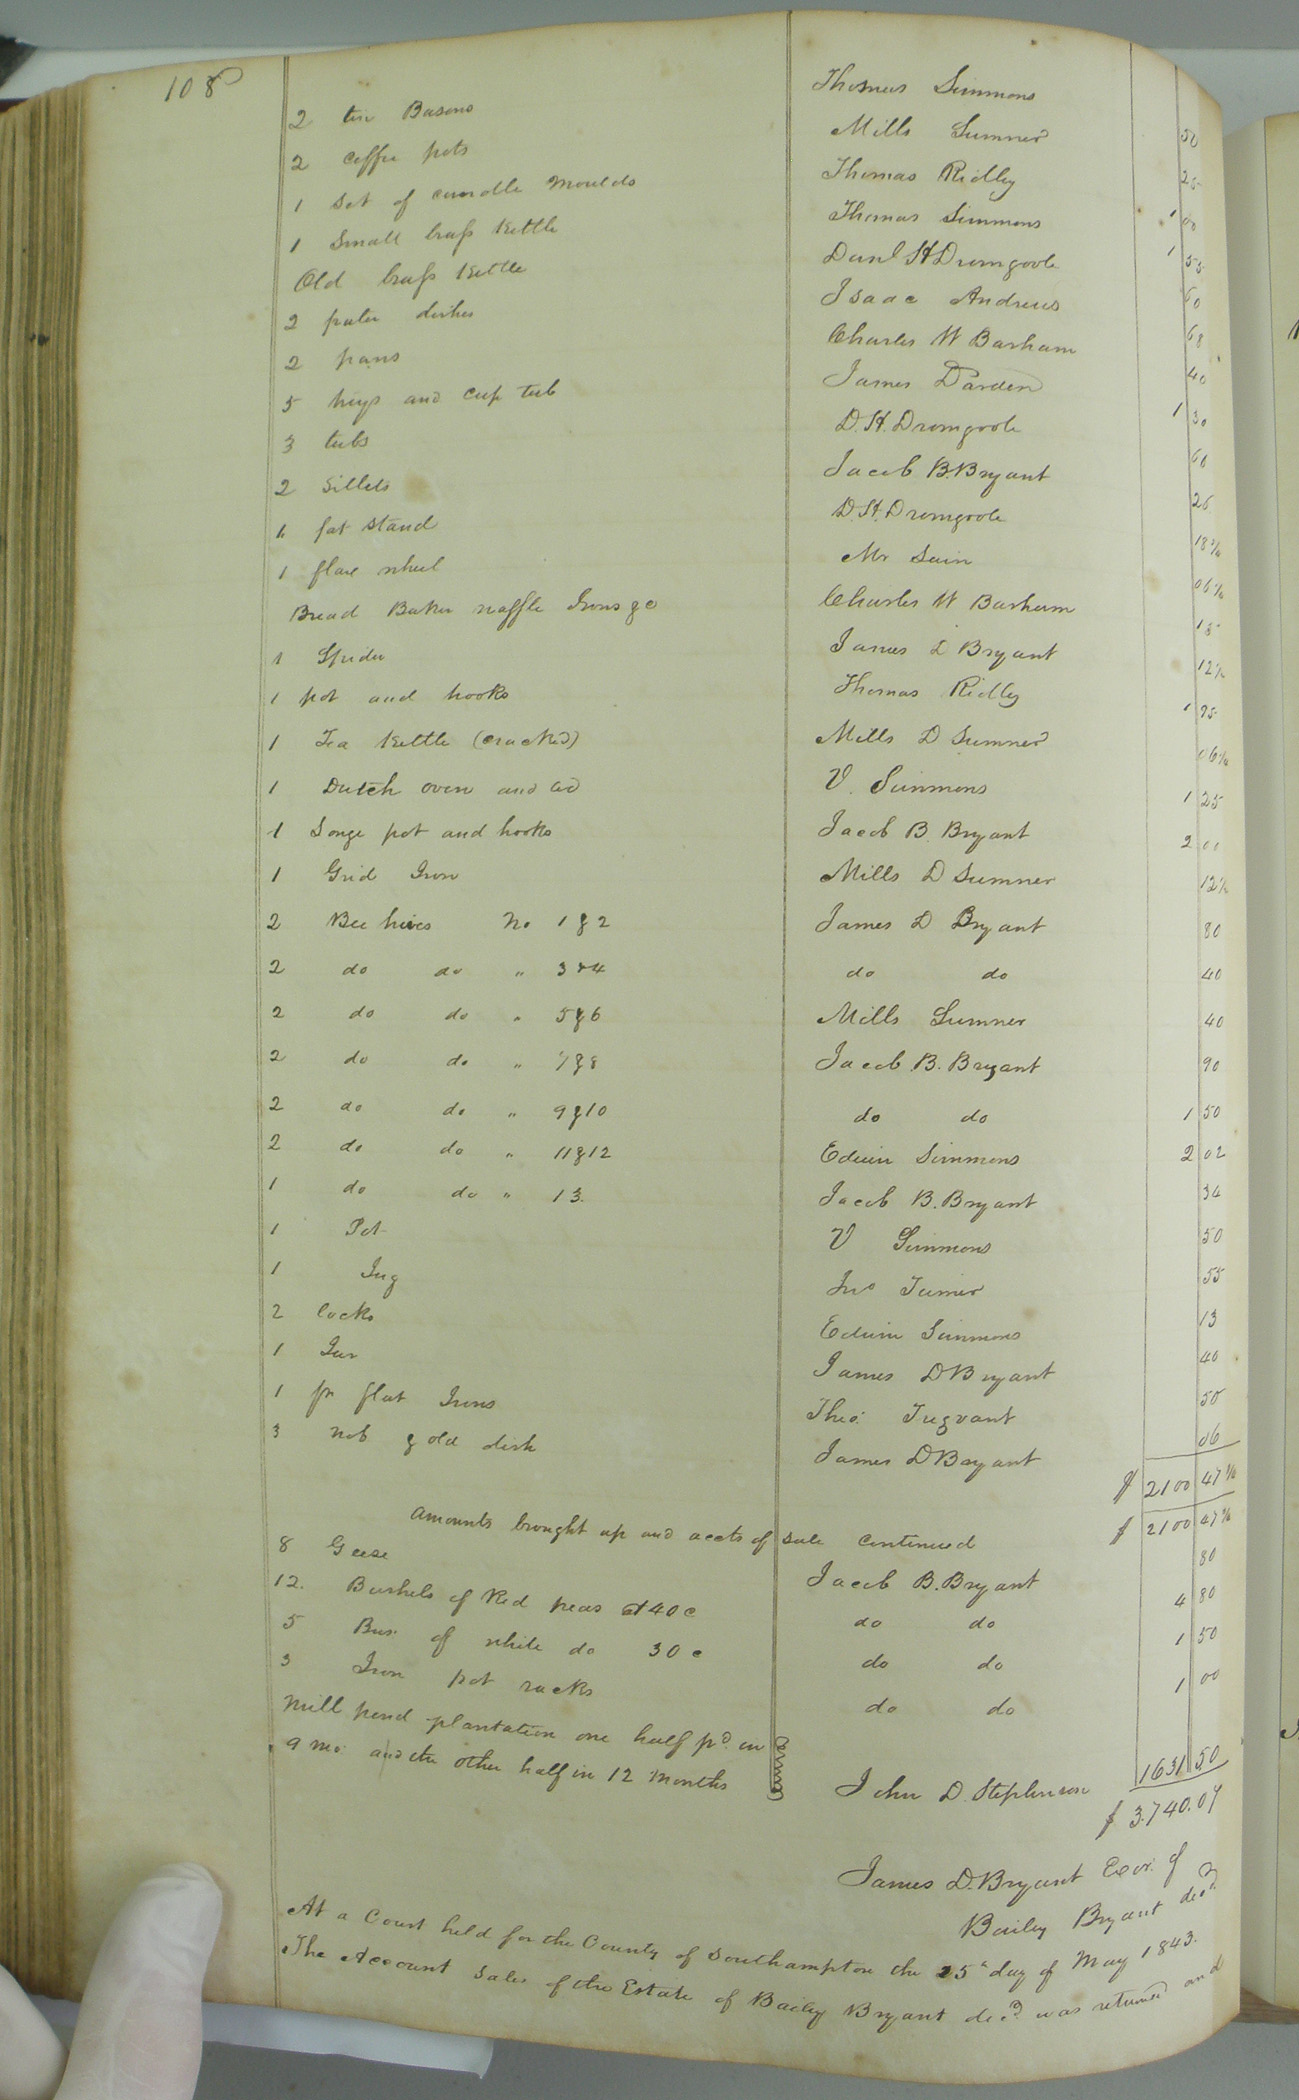 108
2 tin Basons Thomas Simmons 50
2 coffee pots Mills Sumner 25
1 Set of candle moulds Thomas Ridley 1 00
1 Small brass kettle Thomas Simmons 1 55
Old brass kettle Danl H Dromgoole 60
2 puter dishes Isaac Andrews 68
2 pans Charles W Barham 40
5 keys and cup tub James Darden 1 30
3 tubs D. H. Dromgoole 60
2 Sillets Jacob B. Bryant 26
1 fat stand D. H. Dromgoole 18 3/4
1 flax wheel Mr Sain 06 1/4
Bread Baker waffle Irons &c Charles W Barham 15
1 Spider James D Bryant 12 1/2
1 pot and hooks Thomas Ridley 1 25
1 Tea Kettle (cracked) Mills D Sumner 06 1/4
1 Dutch oven and ad V. Simmons 1 25
1 Large pot and hooks Jacob B. Bryant 2 00
1 Grid Iron Mills D Sumner 12 1/2
2 Bee hives No 1 & 2 James D Bryant 80
2 do do " 3 & 4 do do 40
2 do do " 5 & 6 Mills Sumner 40
2 do do " 7 & 8 Jacob B. Bryant 90
2 do do " 9 & 10 do do 1 50
2 do do " 11 & 12 Edwin Simmons 2 02
1 do do " 13. Jacob B. Bryant 34
1 Pot V Simmons 50
1 Jug Jno Turner 55
2 locks Edwin Simmons 13
1 Jar James D Bryant 40
1 pr flat Irons Theo. Tregvant 50
3 nob & old dish James D Bryant 06
$ 2100 47 3/4
amounts brought up and accts of sale continued $ 2100 47 3/4
8 Geese Jacob B. Bryant 80
12. Bushels of Red peas at 40 c do do 4 80
5 Bus. of white do 30 c do do 1 50
3 Iron pot racks do do 1 00
Mill pond plantation one half pd. in
9 mo. and the other half in 12 Months John D. Stephenson 1631 50
$ 3.740.07
James D. Bryant Exor. of
Bailey Bryant decd.
At a Court held for the County of Southampton the 25th day of May 1843.
The Account Sales of the Estate of Bailey Bryant decd. was returned and